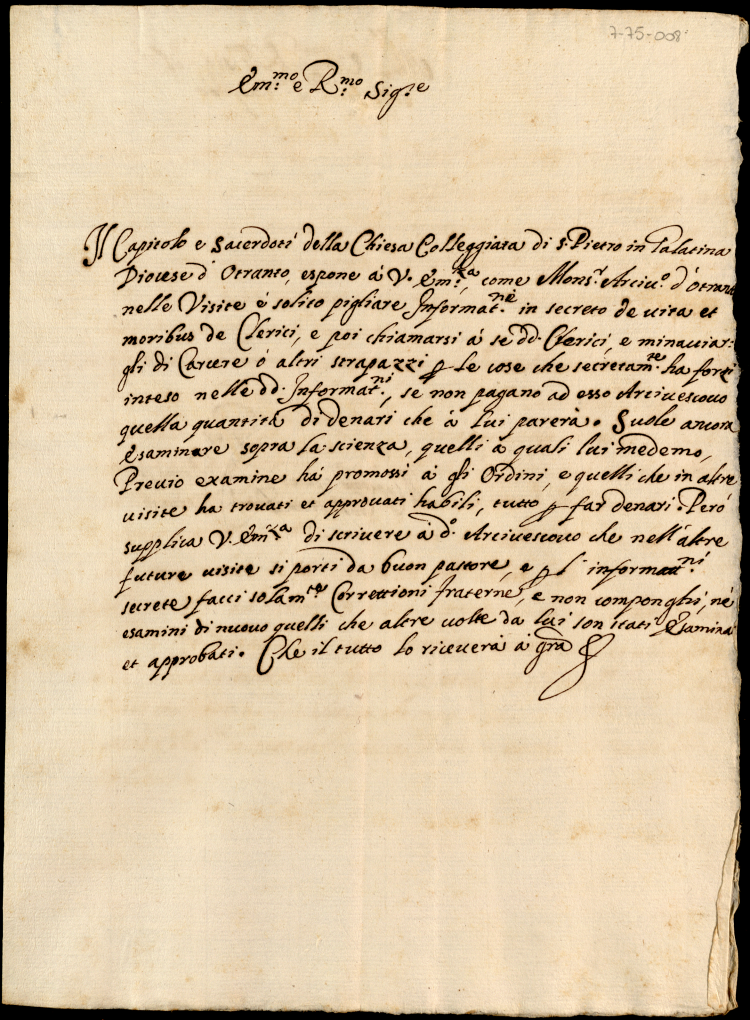 7-75-008
Em:mo e R:mo Sig:e
Il Capitolo e Sacerdoti della Chiesa Colleggiata di S. Pietro in Galatina
Diocese d'Otranto, espone à V. Em:za come Mons:r Arciv:o d'Otranto
nelle Visite è solito pigliare Informat:ne in secreto de vita et
moribus de Clerici, e poi chiamarsi à se dd: Clerici, e minacciar:
gli di Carcere ò altri strapazzi p le cose che secretam:te ha forsi
inteso nelle dd: Informat:ni, se non pagano ad esso Arcivescovo
quella quantità di denari che à lui parerà. Suole ancora
esaminare sopra la scienza, quelli à quali lui medemo,
Previo examine hà promossi à gli Ordini, e quelli che in altre
visite ha trovati et approvati habili, tutto p far denari. Però
supplica V. Em:za di scrivere à d:o Arcivescovo che nell'altre
future visite si porti da buon pastore, e p l'informat:ni
secrete facci solam:te Correttioni fraterne, e non componghi, nè
esamini di nuovo quelli che altre volte da lui son stati Esamina
et approbati. Che il tutto lo riceverà à grã